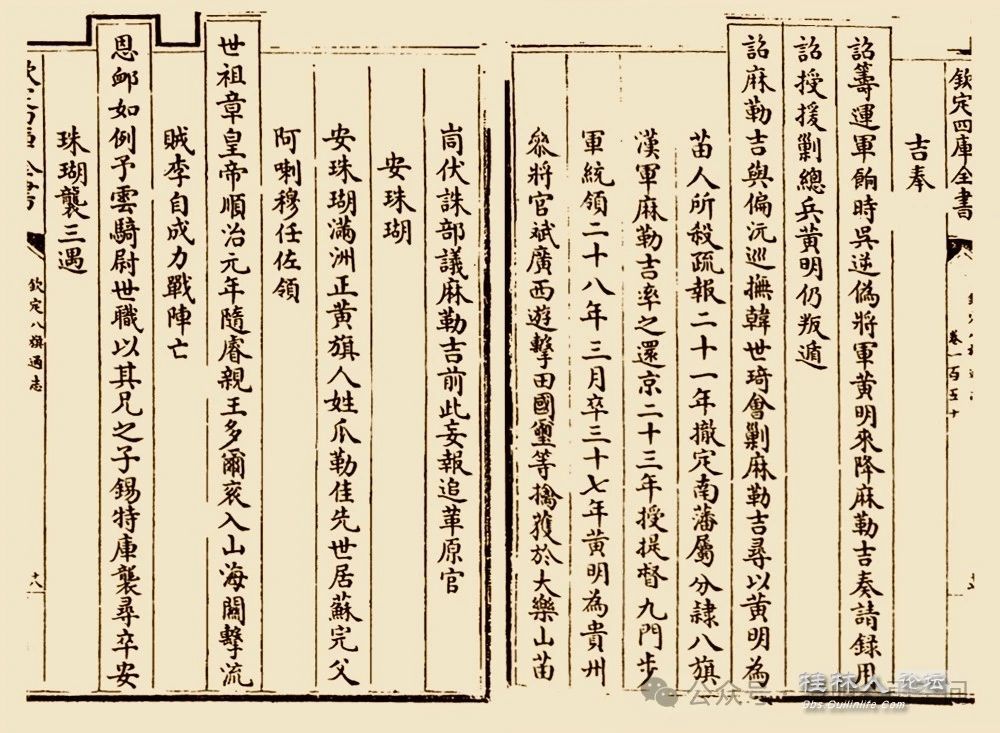 欽定四庫全書
卷一百五十
吉奉
詔籌運軍餉時吳逆偽將軍黄明來降麻勒吉奏請錄用
詔授援剿總兵黄明仍叛遁
詔麻勒吉與偏沅巡撫韓世琦會剿麻勒吉尋以黄明為
苗人所殺疏報二十一年撤定南藩屬分隸八旗
漢軍麻勒吉率之還京二十三年授提督九門步
軍統領二十八年三月卒三十七年黄明為貴州
叅將官斌廣西遊擊田國璽等擒獲於大樂山苗
峝伏誅部議麻勒吉前此妄報追革原官
安珠瑚
安珠瑚滿洲正黄旗人姓瓜勒佳先世居蘇完父
阿喇穆任佐領
世祖章皇帝順治元年隨睿親王多爾衮入山海關擊流
賊李自成力戰陣亡
恩卹如例予雲騎尉世職以其兄之子錫特庫襲尋卒安
珠瑚襲三遇
欽定四庫全書
欽定八旗通志
十八
公众号
桂林人论坛
Bbs.Guilinlife.Com